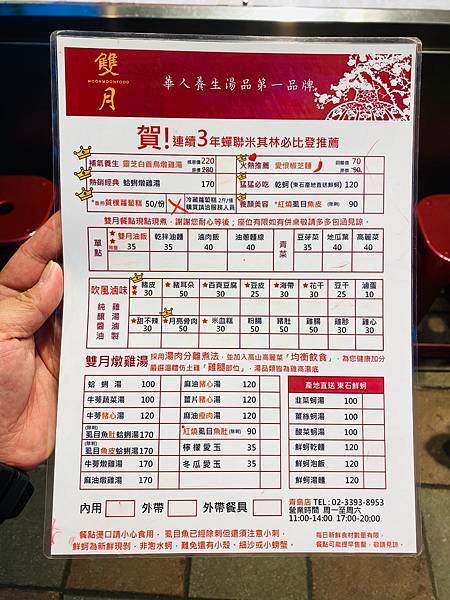 雙月
MOONMOONFOOD
華人養生湯品第一品牌
賀!連續3年蟬聯米其林必比登推薦
補氣養生 靈芝白首烏燉雞湯 220
火熱推薦 愛恨椒芝麵 70 90
熱銷經典 蛤蜊燉雞湯 170
猛猛必吃 乾蚵(東石產地直送鮮蚵) 120
質樸蘿蔔糕 50/份
冷藏蘿蔔糕 2斤/條
購買請洽服務人員
養顏美容 *紅燒虱目魚肚(除刺) 90
雙月餐點現點現煮，謝謝您耐心等後；座位有限如有併桌敬請多多包涵見諒。
單點 雙月油飯 乾拌油麵 滷肉飯 油蔥麵線 青菜 豆芽菜 地瓜葉 高麗菜
35 35 40 40 35 40 40
吹風滷味 豬皮 豬耳朵 百頁豆腐 豆皮 海帶 花干 豆干 滷蛋
30 50 30 25 25 30 25 10
純釀醬油 雞湯滷製
甜不辣 月亮骨肉 米血糕 粉腸 豬肚 雞腸 雞胗 雞心
30 50 30 50 50 50 30 30
雙月燉雞湯 採用湯肉分離煮法，並加入高山高麗菜「均衡飲食」，為您健康加分
嚴選溫體仿土雞「雞腿部位」，湯品類皆為雞高湯底
蛤蜊湯 100 麻油豬心湯 120 產地直送 東石鮮蚵
牛蒡蔬菜湯 100 薑片豬心湯 120 韭菜蚵湯 100
牛蒡豬心湯 120 麻油瘦肉湯 120 薑絲蚵湯 100
(除刺)虱目魚肚蛤蜊湯 170 *紅燒虱目魚肚(除刺) 90 酸菜蚵湯 100
(除刺)虱目魚皮蛤蜊湯 150 檸檬愛玉 35 鮮蚵乾麵 120
牛蒡燉雞湯 170 冬瓜愛玉 35 鮮蚵泡飯 120
麻油燉雞湯 170 鮮蚵湯麵 120
內用 外帶 外帶餐具
青島店 TEL：02-3393-8953
營業時間 周一至周六
11:00-14:00 17:00-20:00
餐點燙口請小心食用， 虱目魚已經除刺但還須注意小刺，
鮮蚵為新鮮現剝，非泡水蚵，難免還有小殼、細沙或小螃蟹。
每日新鮮食材數量有限，
餐點可能提早售罄，敬請見諒。